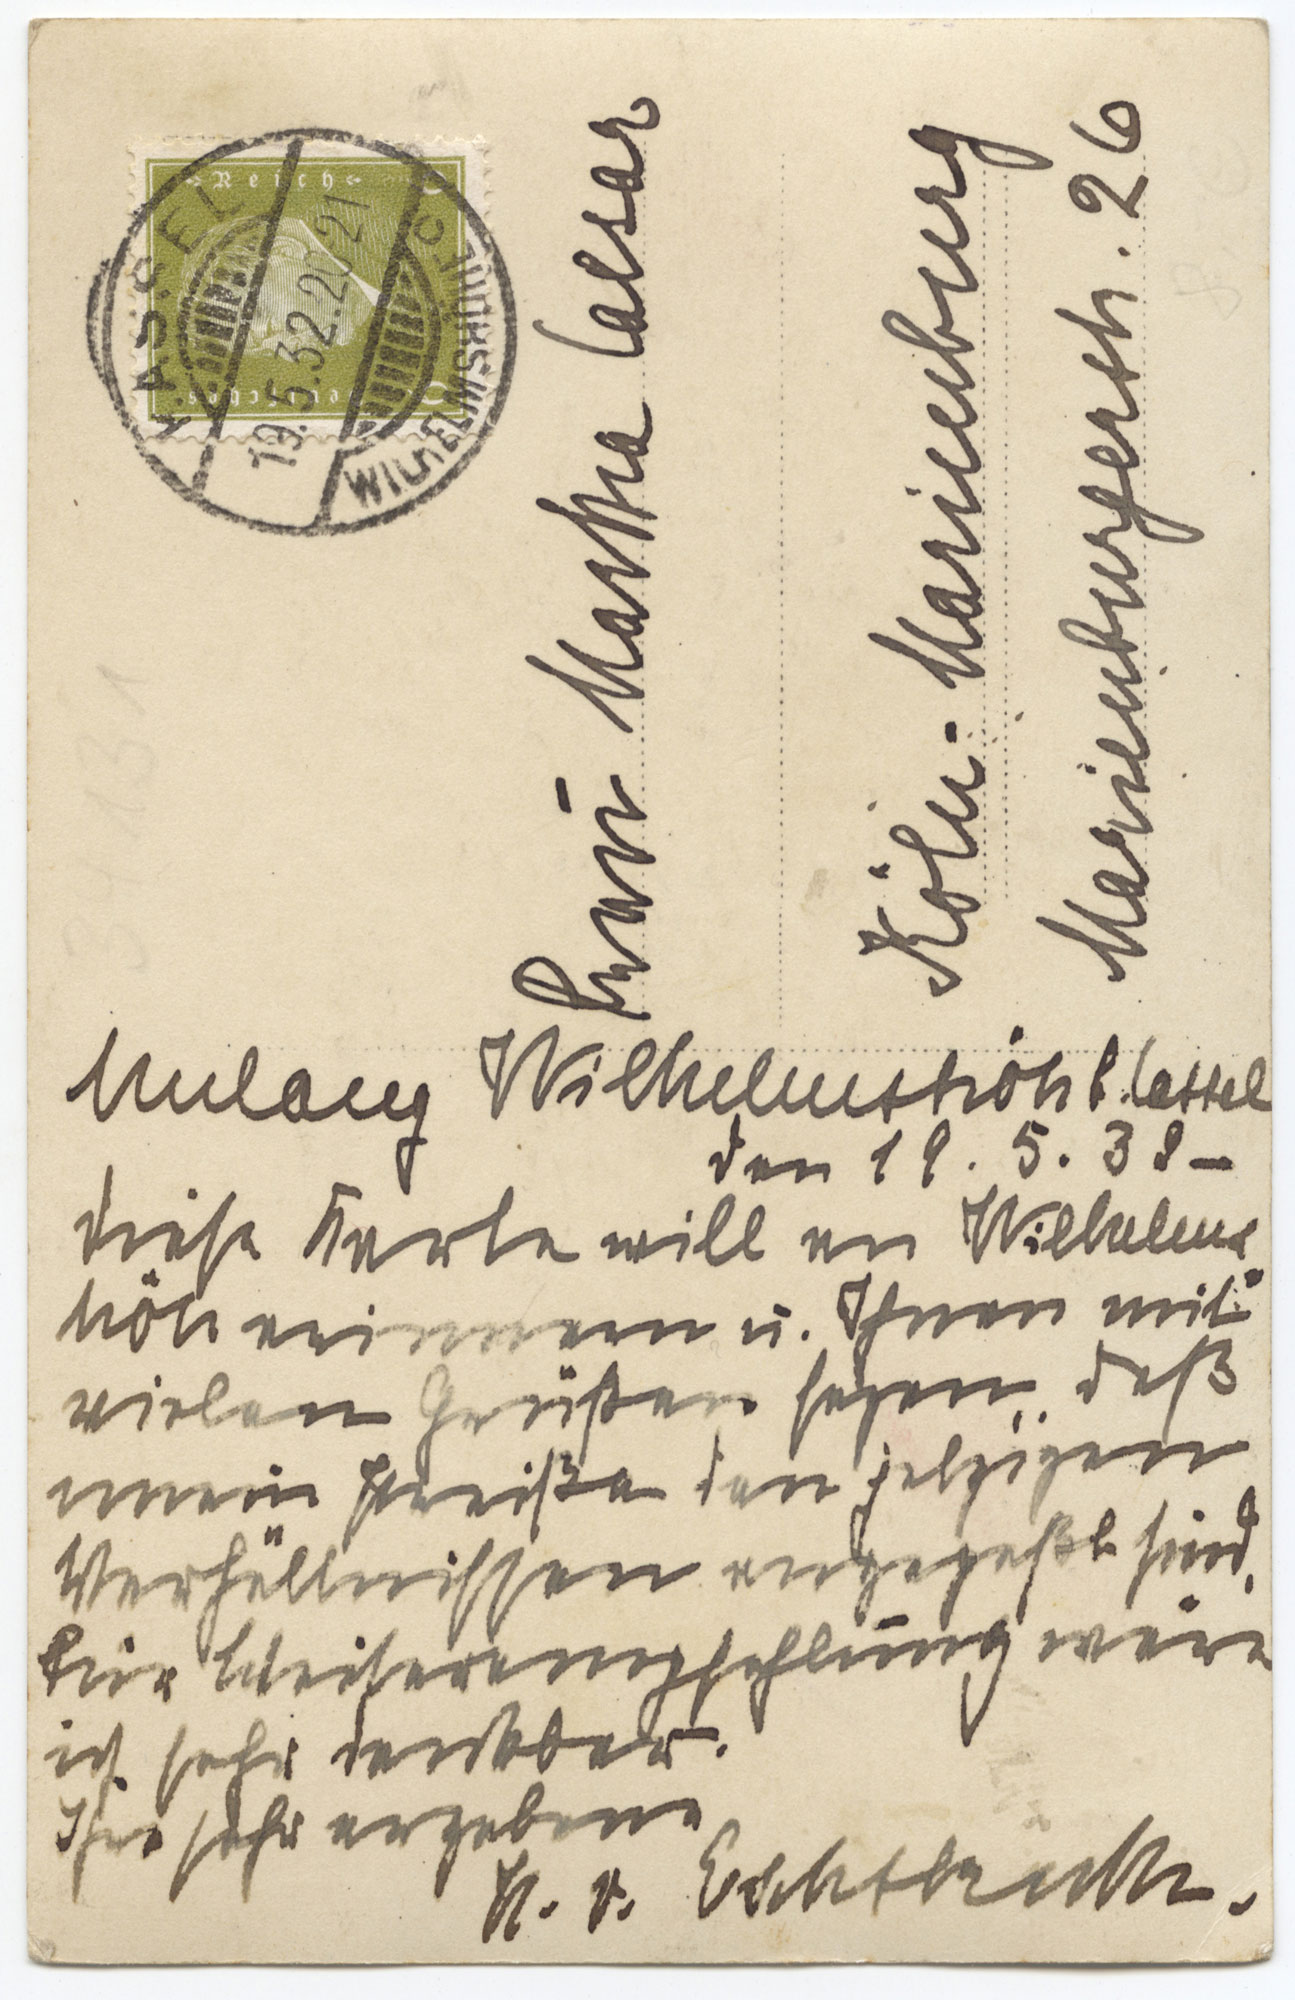 Reich
KASSEL
19.5.32.20-21
WILHELMSHÖHE
Frau Martha Caesar
Köln-Marienburg
Marienburgerstr. 26
Mulang Wilhelmshöhe b. Cassel
den 19. 5. 32 –
diese Karte will an Wilhelms
höhe erinnern u. Ihnen mit
vielen Grüßen sagen, daß
meine Preise den jetzigen
Verhältnissen angepaßt sind.
Für Weiterempfehlung wäre
ich sehr dankbar.
Ihre sehr ergebene
v.